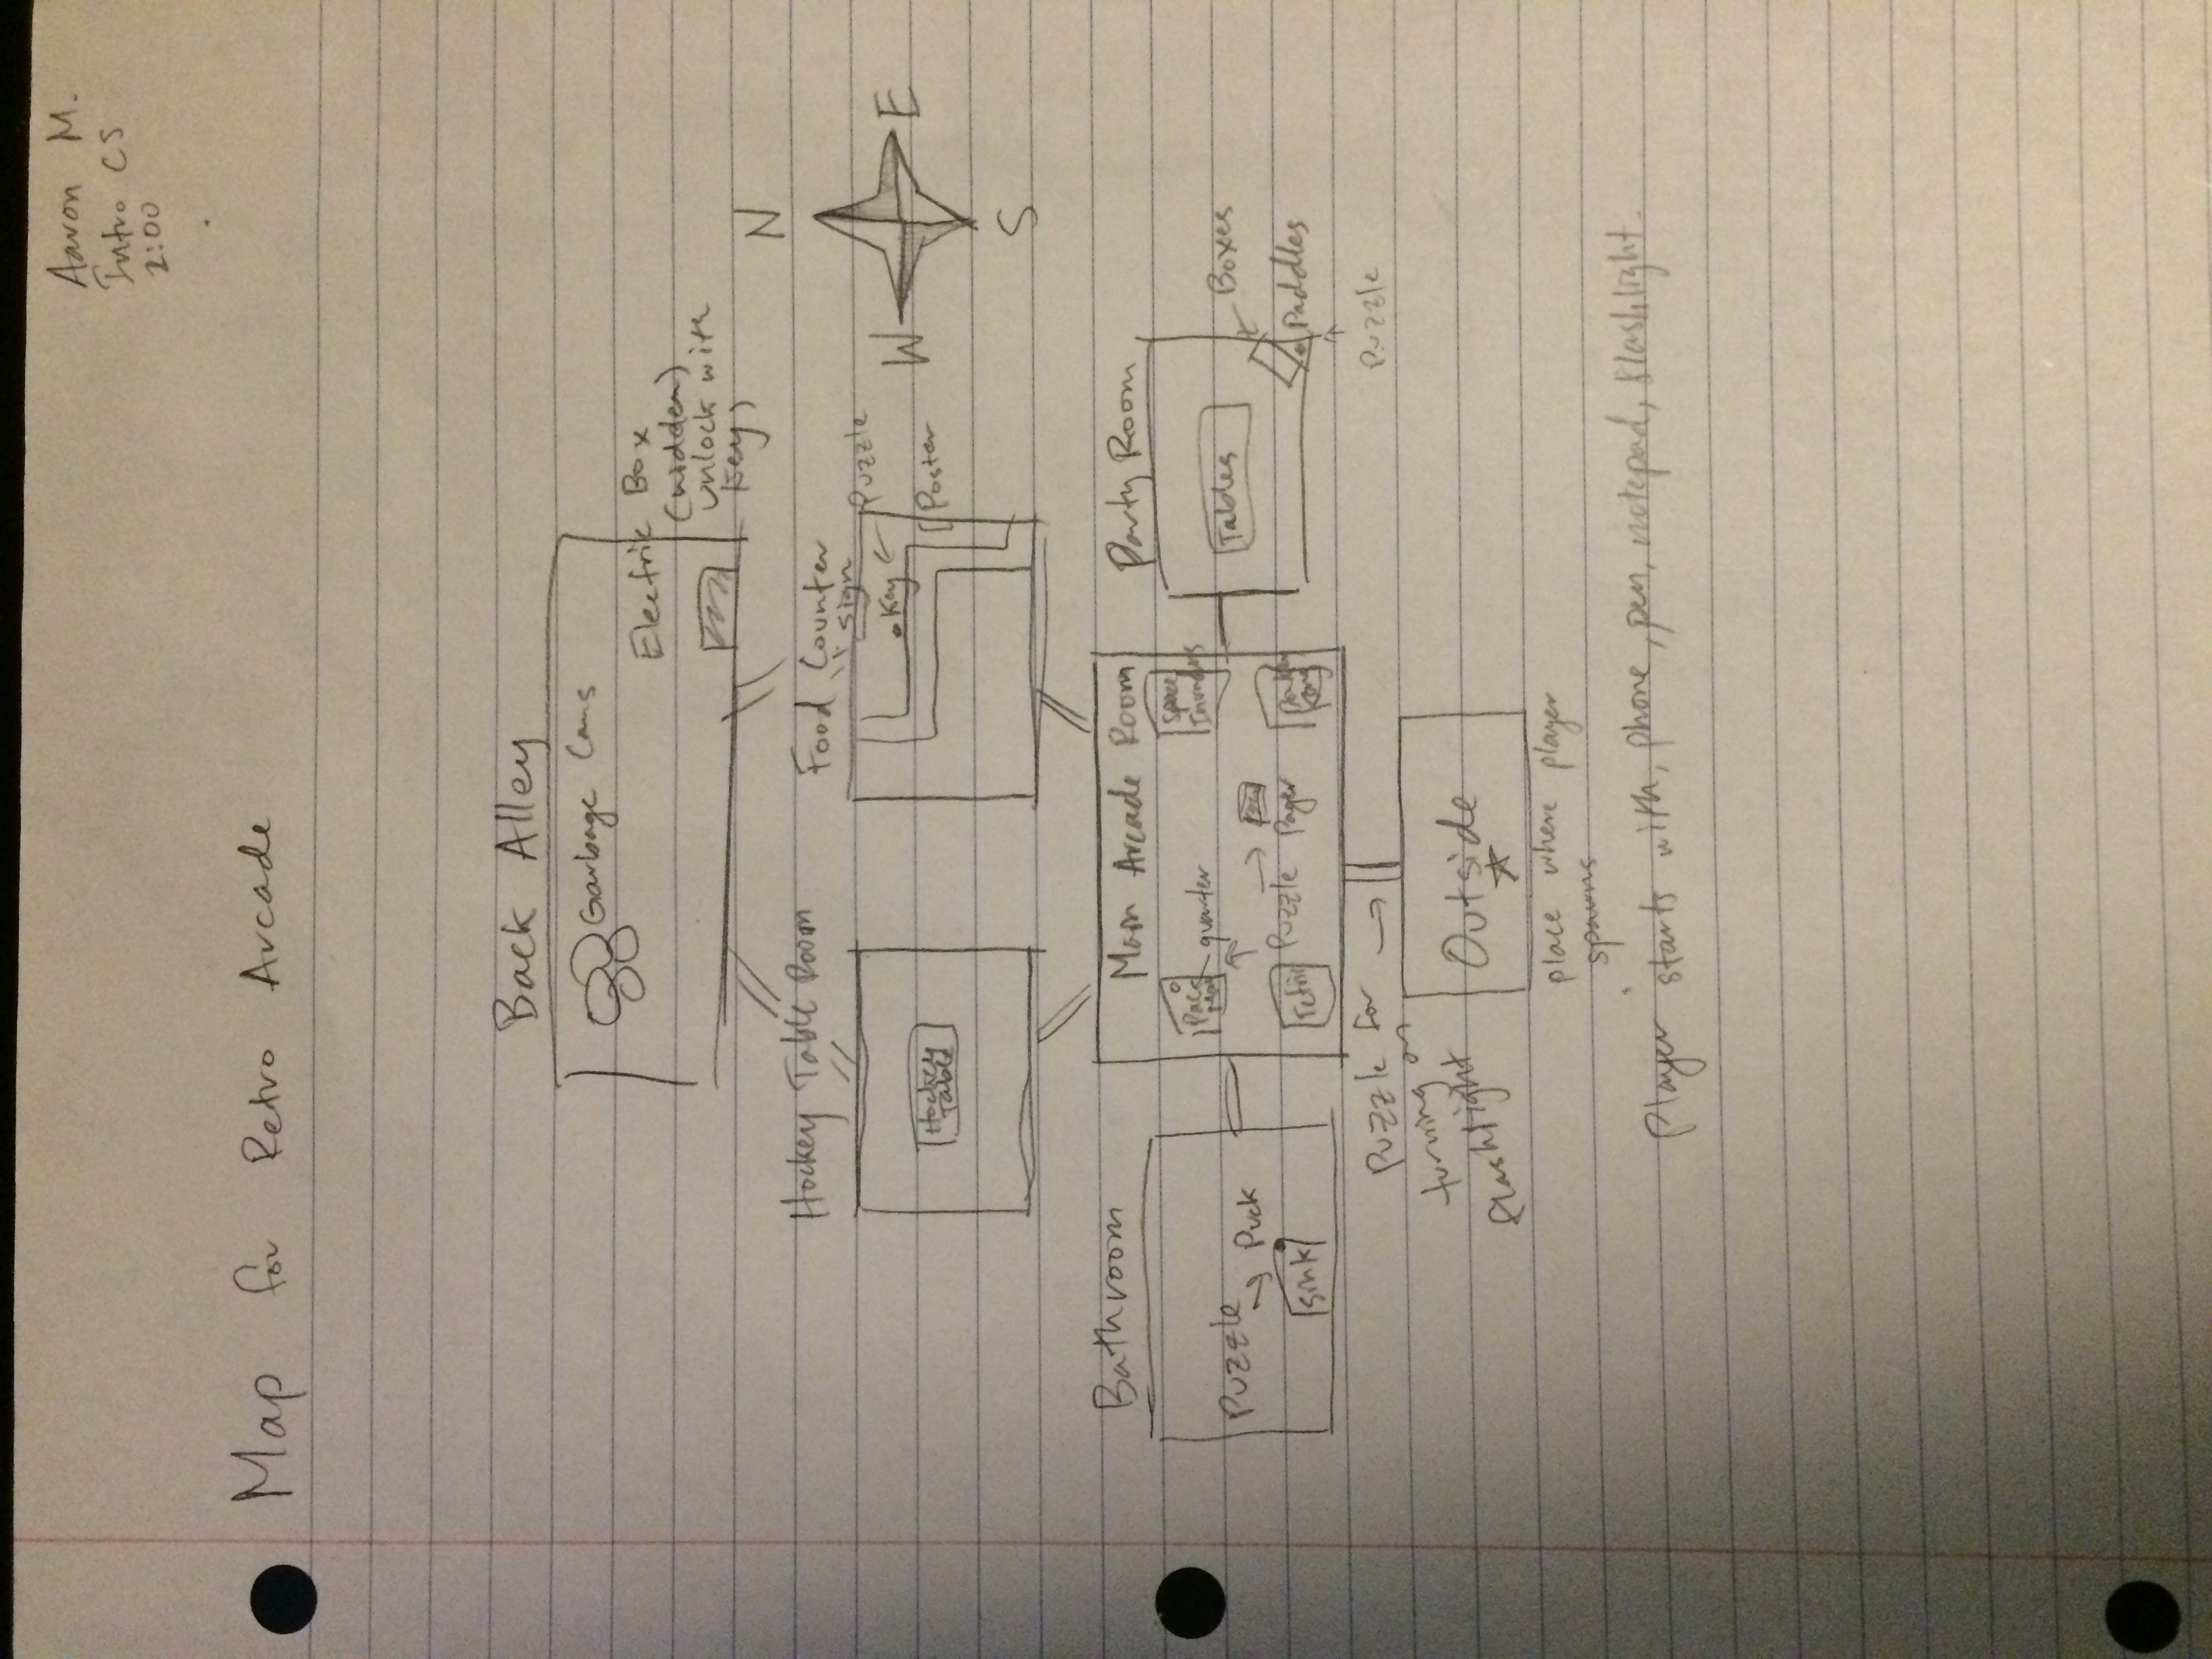 Aaron M.
Intro CS
2:00
Map for Retro Arcade
Back Alley
Garbage Cans
Electric Box
(hidden)
unlock with
key,
N
W
E
S
Hockey Table Room
Hockey
Table
Food Counter
sign
Puzzle
Key
Poster
Bathroom
Puzzle
Puck
Sink
Main Arcade Room
Pac
Man
quarter
Space
Invaders
Puzzle
Pager
Tetris
Donkey
Kong
Party Room
Tables
Boxes
Paddles
Puzzle
Puzzle for
turning on
flashlight
Outside
place where player
spawns
Player starts with, phone, pen, notepad, flashlight.